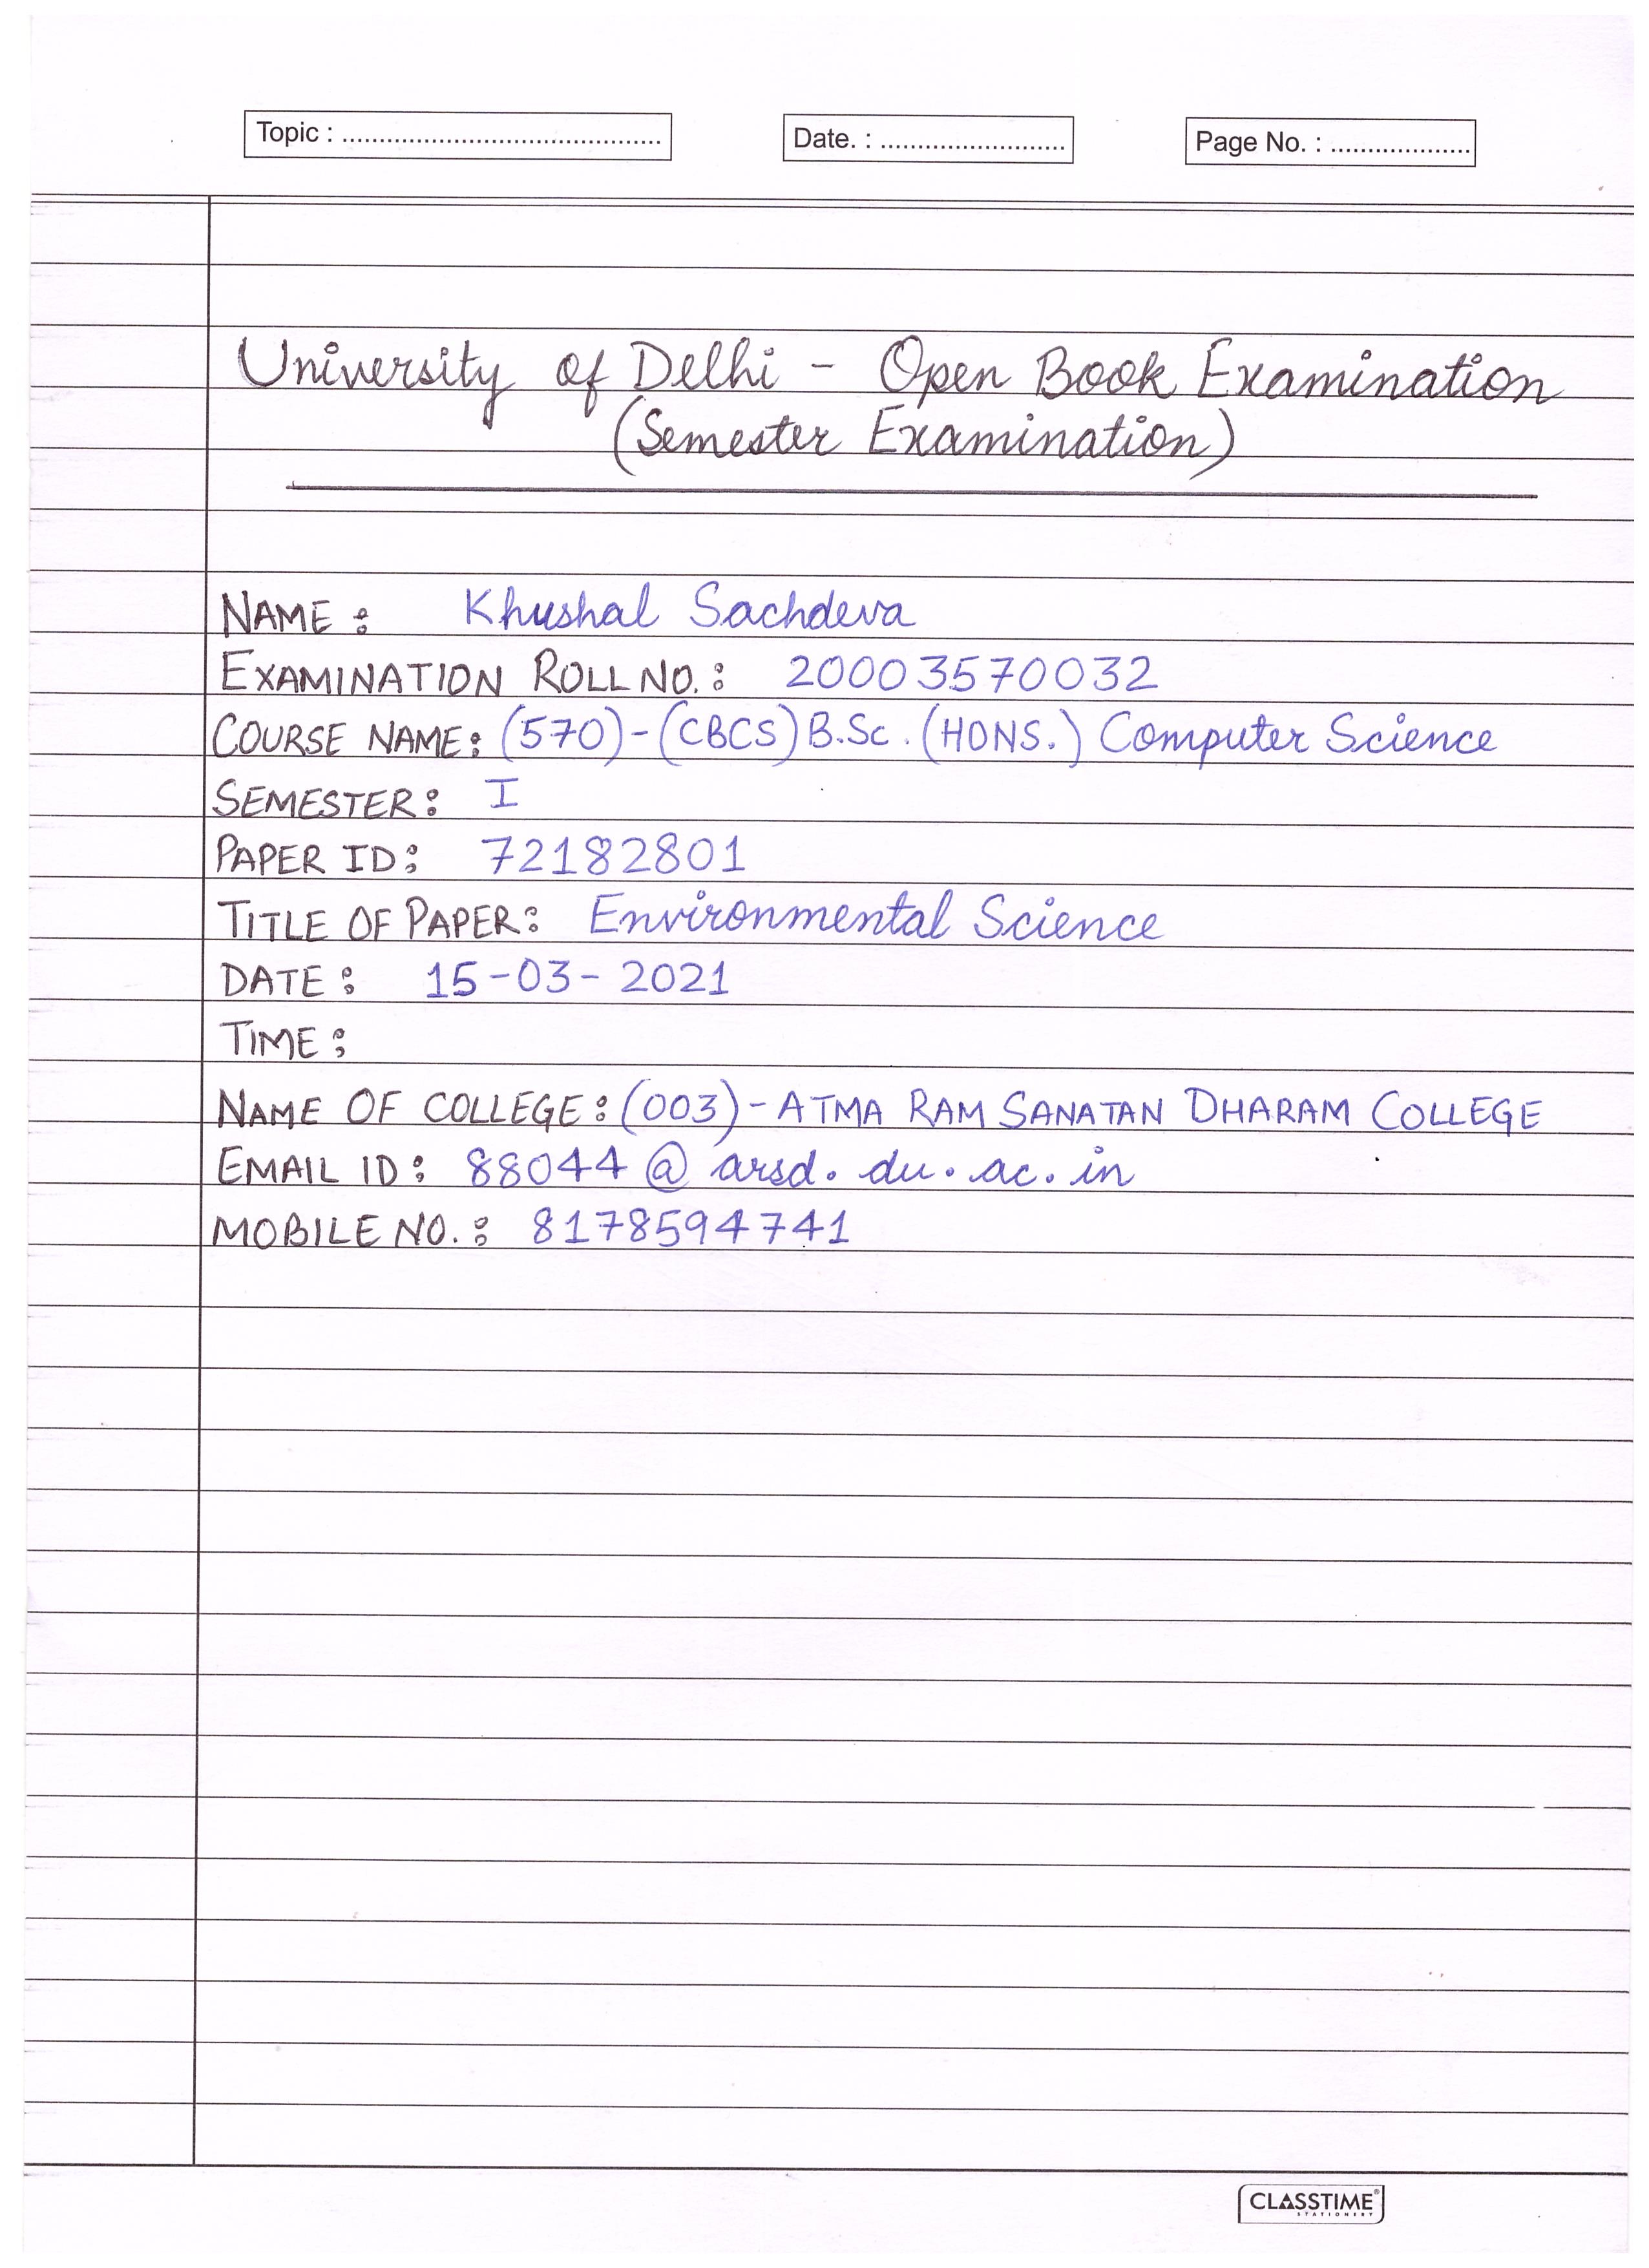 Topic : ........................................... Date. : ......................... Page No. : ...................
University of Delhi - Open Book Examination
(Semester Examination)
NAME : Khushal Sachdeva
EXAMINATION ROLL NO. : 20003570032
COURSE NAME: (570)-(CBCS) B.Sc. (HONS.) Computer Science
SEMESTER: I
PAPER ID: 72182801
TITLE OF PAPER: Environmental Science
DATE : 15-03-2021
TIME :
NAME OF COLLEGE : (003)-ATMA RAM SANATAN DHARAM COLLEGE
EMAIL ID : 88044@arsd.du.ac.in
MOBILE NO. : 8178594741
CLASSTIME®
STATIONERY